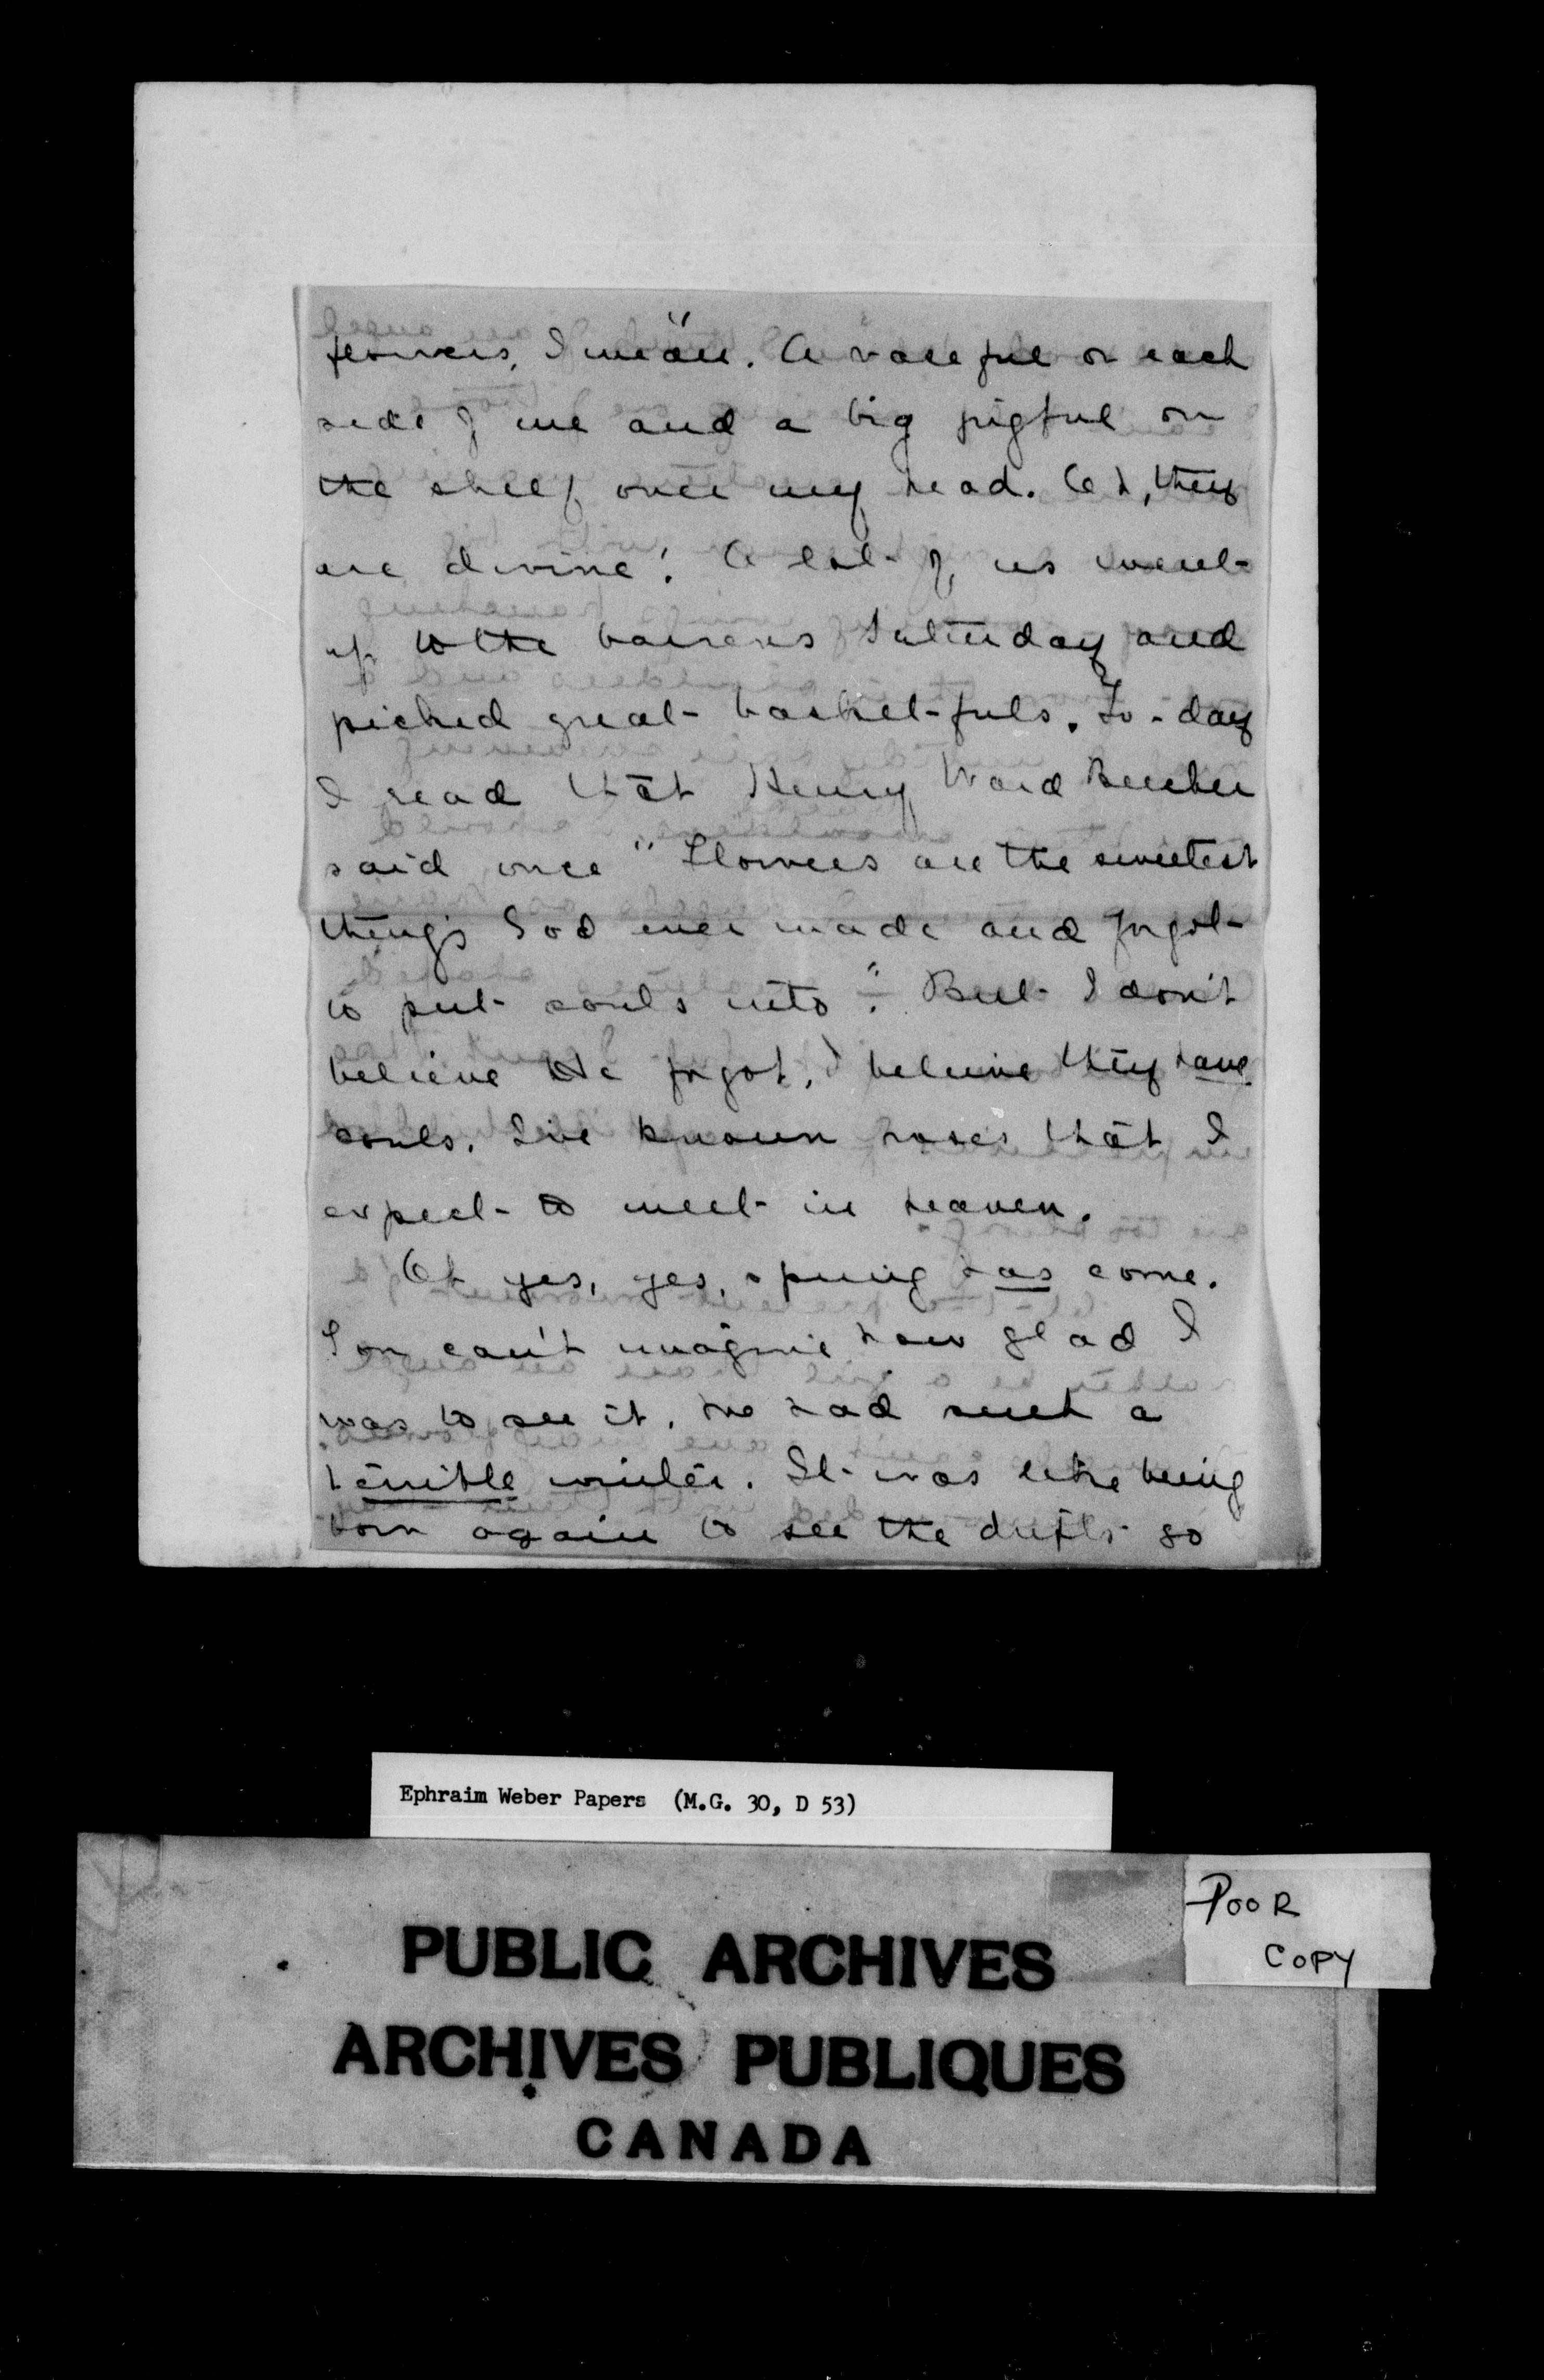 flowers, I mean. A vase full on each
side of me and a big jugful on
the shelf over my head. Oh, they
are divine! A lot of us went
up to the barrens Saturday and
picked great basket-fuls. To-day
I read that Henry Ward Beecher
said once "Flowers are the sweetest
things God ever made and forgot
to put souls into". But I don't
believe He forgot. I believe they have
souls. I've known roses that I
expect to meet in heaven.
Oh yes, yes, spring has come.
You can't imagine how glad I
was to see it. We had such a
terrible winter. It was like being
born again to see the drifts go
Ephraim Weber Papers (M.G. 30, D 53)
POOR
COPY
PUBLIC ARCHIVES
ARCHIVES PUBLIQUES
CANADA